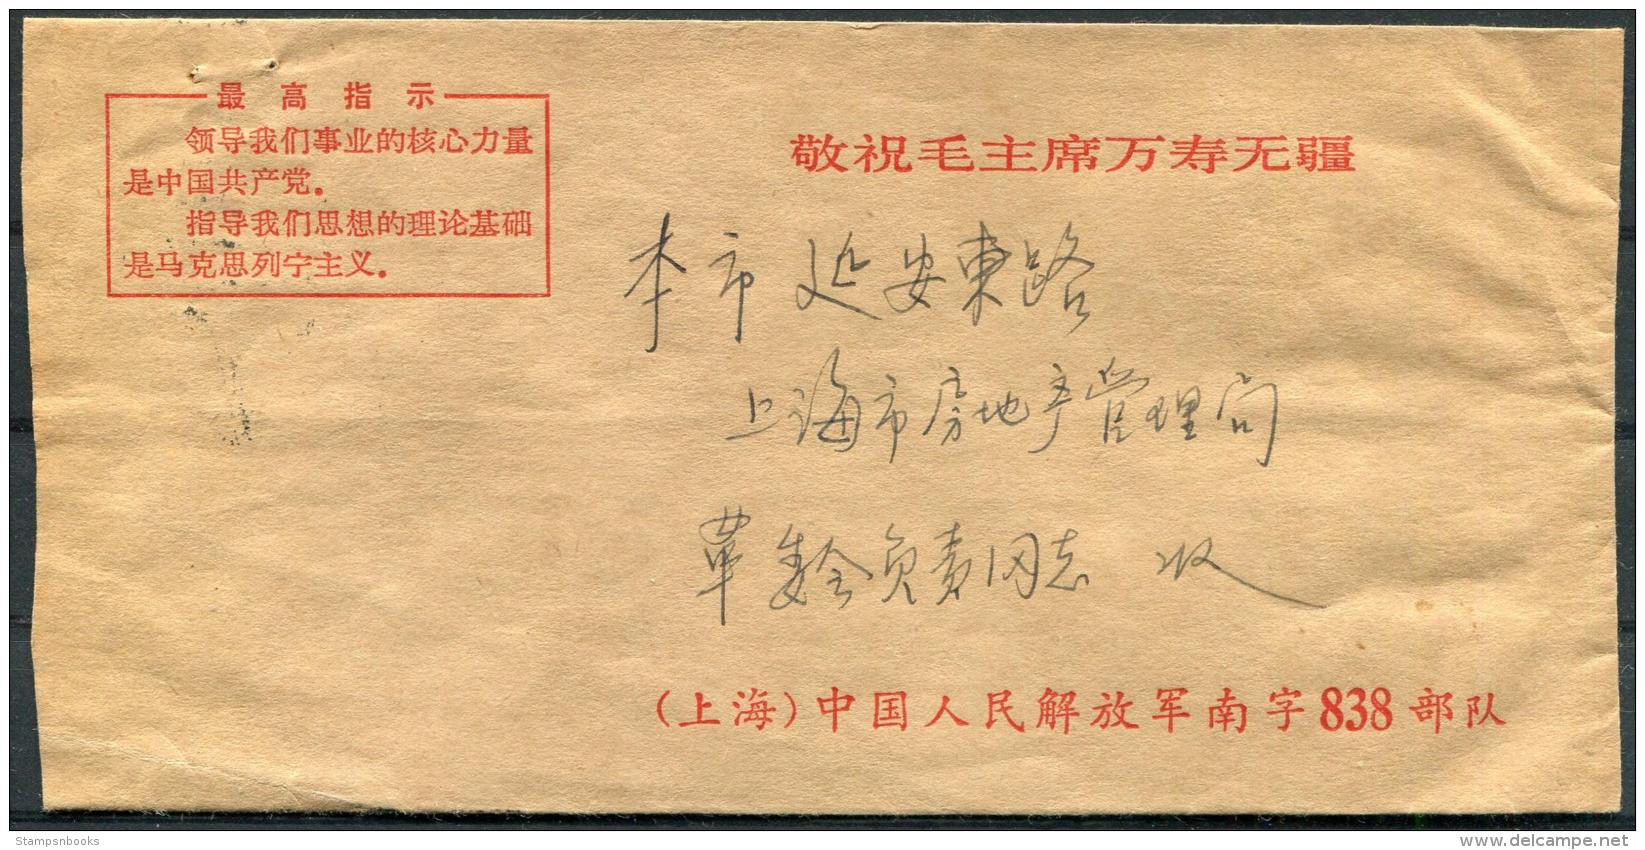 最高指示
领导我们事业的核心力量
是中国共产党。
指导我们思想的理论基础
是马克思列宁主义。
敬祝毛主席万寿无疆
本市延安東路
上海市房地产管理局
革委会负责同志 收
(上海)中国人民解放军南字838部队
Stampsnbooks
www.delcampe.net